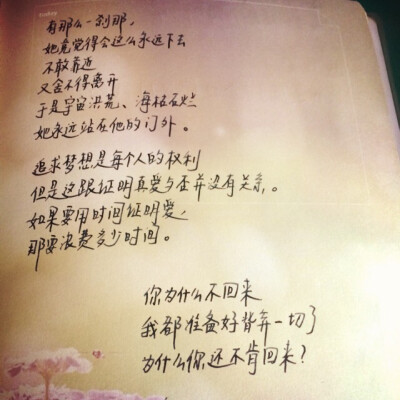 有那么一刹那，
她竟觉得会这么永远下去
不敢靠近
又舍不得离开
于是宇宙洪荒、海枯石烂
她永远站在他的门外。
追求梦想是每个人的权利
但是这跟证明真爱与否并没有关系。
如果要用时间证明爱，
那要浪费多少时间。
你为什么不回来
我都准备好背弃一切了
为什么你还不肯回来？